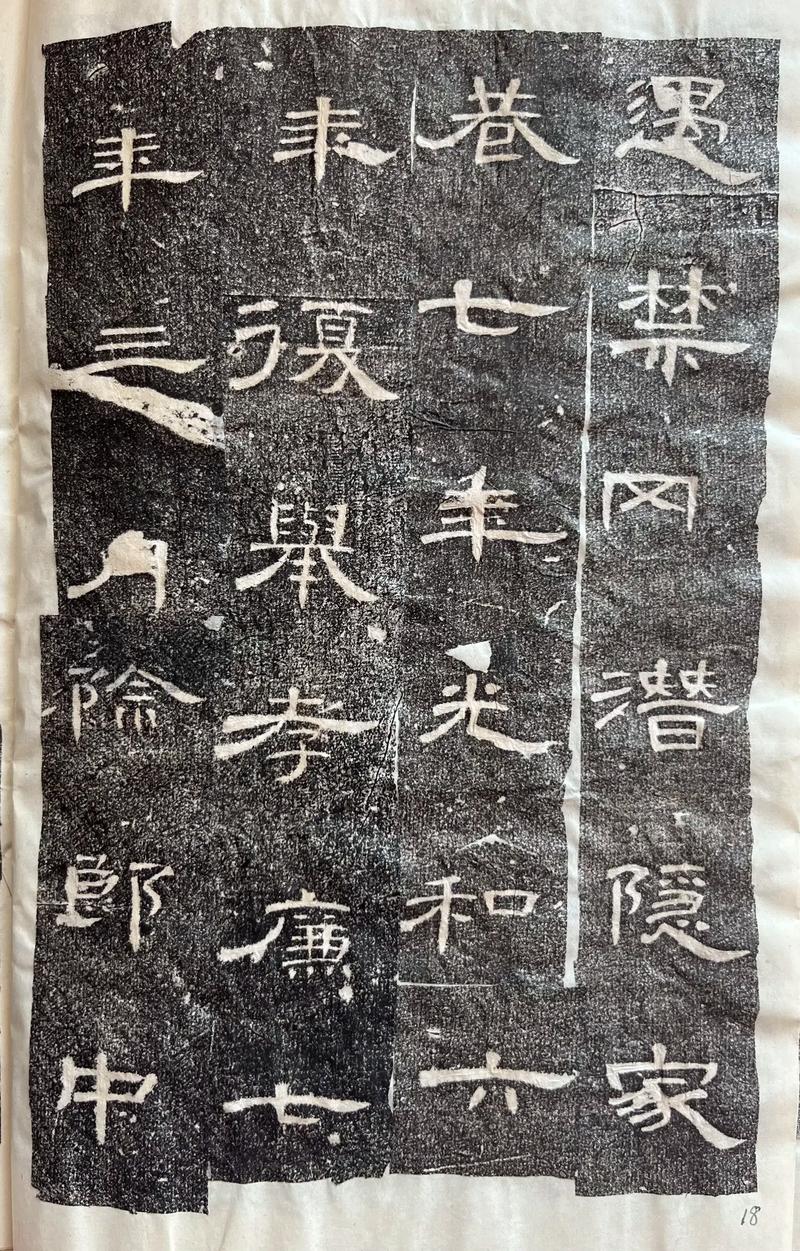 遇禁冈潜隱家
巷七年光和六
年復舉孝廉七
年三月除郎中
18